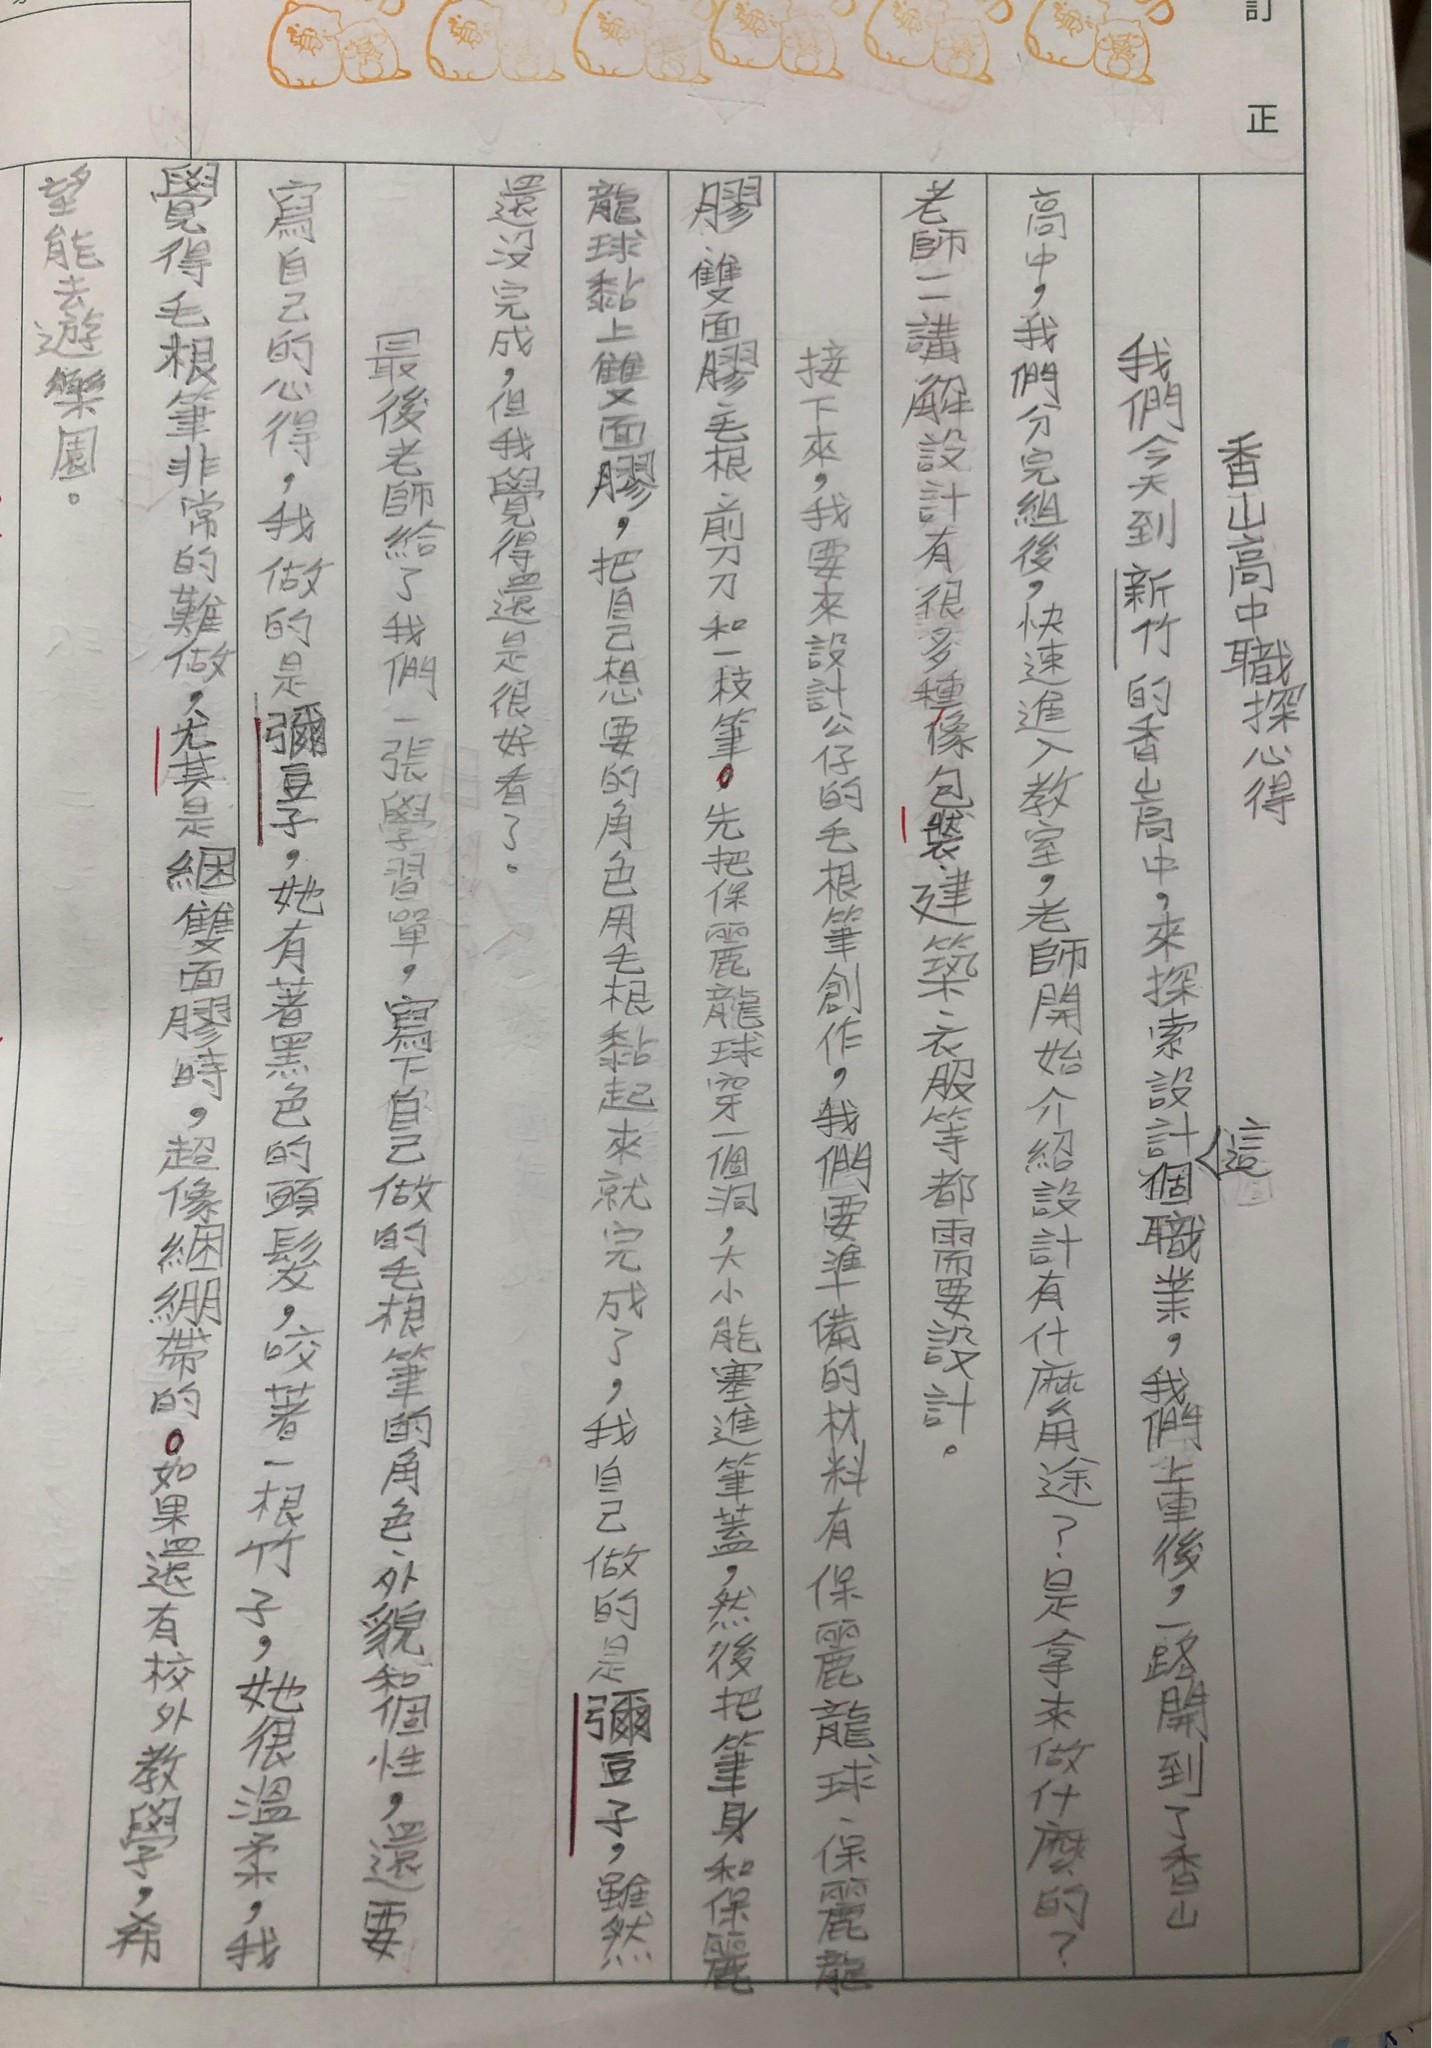 訂正
香山高中職探心得
我們今天到新竹的香山高中，來探索設計這個職業，我們上車後，一路開到了香山
高中，我們分完組後，快速進入教室，老師開始介紹設計有什麼用途？是拿來做什麼的？
老師一一講解設計有很多種像包裝、建築、衣服等都需要設計。
接下來，我要來設計公仔的毛根筆創作，我們要準備的材料有保麗龍球、保麗龍
膠、雙面膠、毛根、剪刀和一枝筆。先把保麗龍球穿一個洞，大小能塞進筆蓋，然後把筆身和保麗
龍球黏上雙面膠，把自己想要的角色用毛根黏起來就完成了，我自己做的是彌豆子，雖然
還沒完成，但我覺得還是很好看了。
最後老師給了我們一張學習單，寫下自己做的毛根筆的角色、外貌和個性，還要
寫自己的心得，我做的是彌豆子，她有著黑色的頭髮，咬著一根竹子，她很溫柔，我
覺得毛根筆非常的難做，尤其是綑雙面膠時，超像綑繃帶的。如果還有校外教學，希
望能去遊樂園。